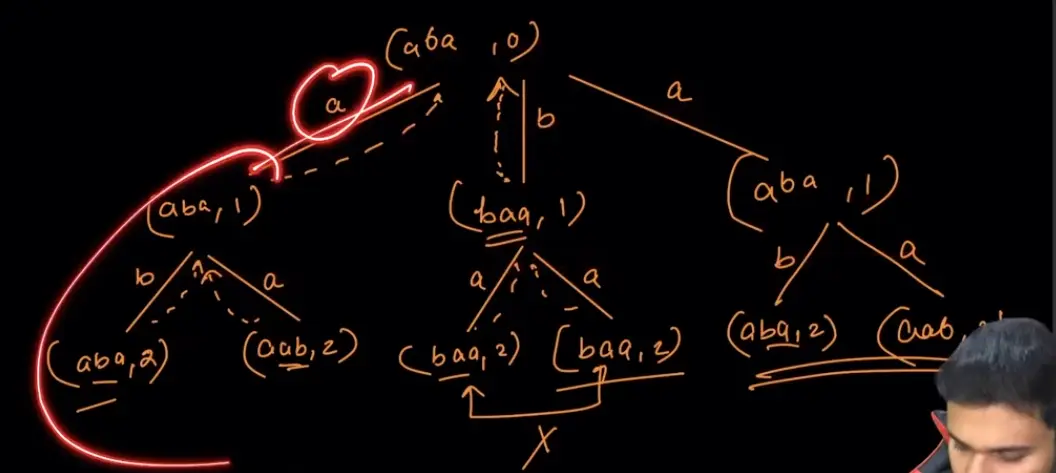 (aba ,0)
a b a
(aba,1) (baa,1) (aba ,1)
b a a a b a
(aba,2) (aab,2) (baa,2) (baa,2) (aba,2) (aab,
X